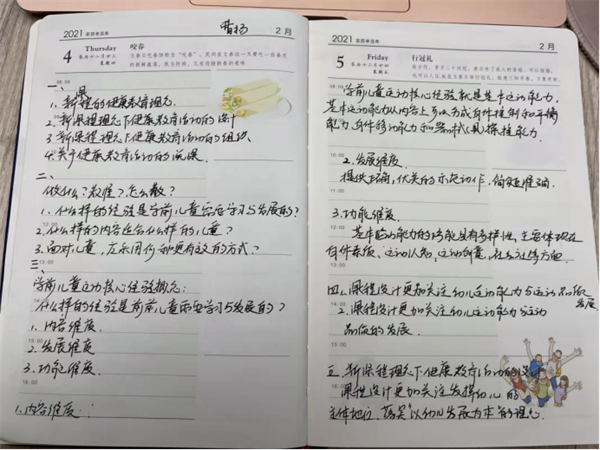 2021 农历辛丑年
2月
4
Thursday
农历十二月廿三
星期四
咬春
曹杨
一、
1. 新课程的健康教育理念
2. 新课程理念下健康教育活动的设计
3. 新课程理念下健康教育活动的组织
4. 关于健康教育活动的
二、
做什么?教谁?怎么教?
1. 什么样的经验是学前儿童需要学习与发展的?
2. 什么样的内容适合什么样的儿童?
3. 面对儿童,应采用何种更有效的方式?
三、
学前儿童运动核心经验概念:
什么样的经验是学前儿童需要学习与发展的?
1. 内容维度
2. 发展维度
3. 功能维度.
1. 内容维度:
2021 农历辛丑年
2月
5
Friday
农历十二月廿四
星期五
行冠礼
学前儿童运动核心经验就是基本运动能力,
基本运动能力从内容上可以分成身体控制和平衡
能力、身体移动能力和器械(具)操控能力.
2. 发展维度.
提供正确,优美的示范动作、简短准确.
3. 功能维度.
基本运动能力的功能具有多样性,主要体现在
身体素质、运动认知、运动创意、社会性等方面.
四、课程设计更加关注幼儿运动能力与运动品质
发展
2. 课程设计更加关注幼儿运动能力与运动
品质的发展.
五、新课程理念下健康教育活动的设计
课程设计更加关注发挥幼儿的
主体地位,落实“以幼儿发展为本”的理念.